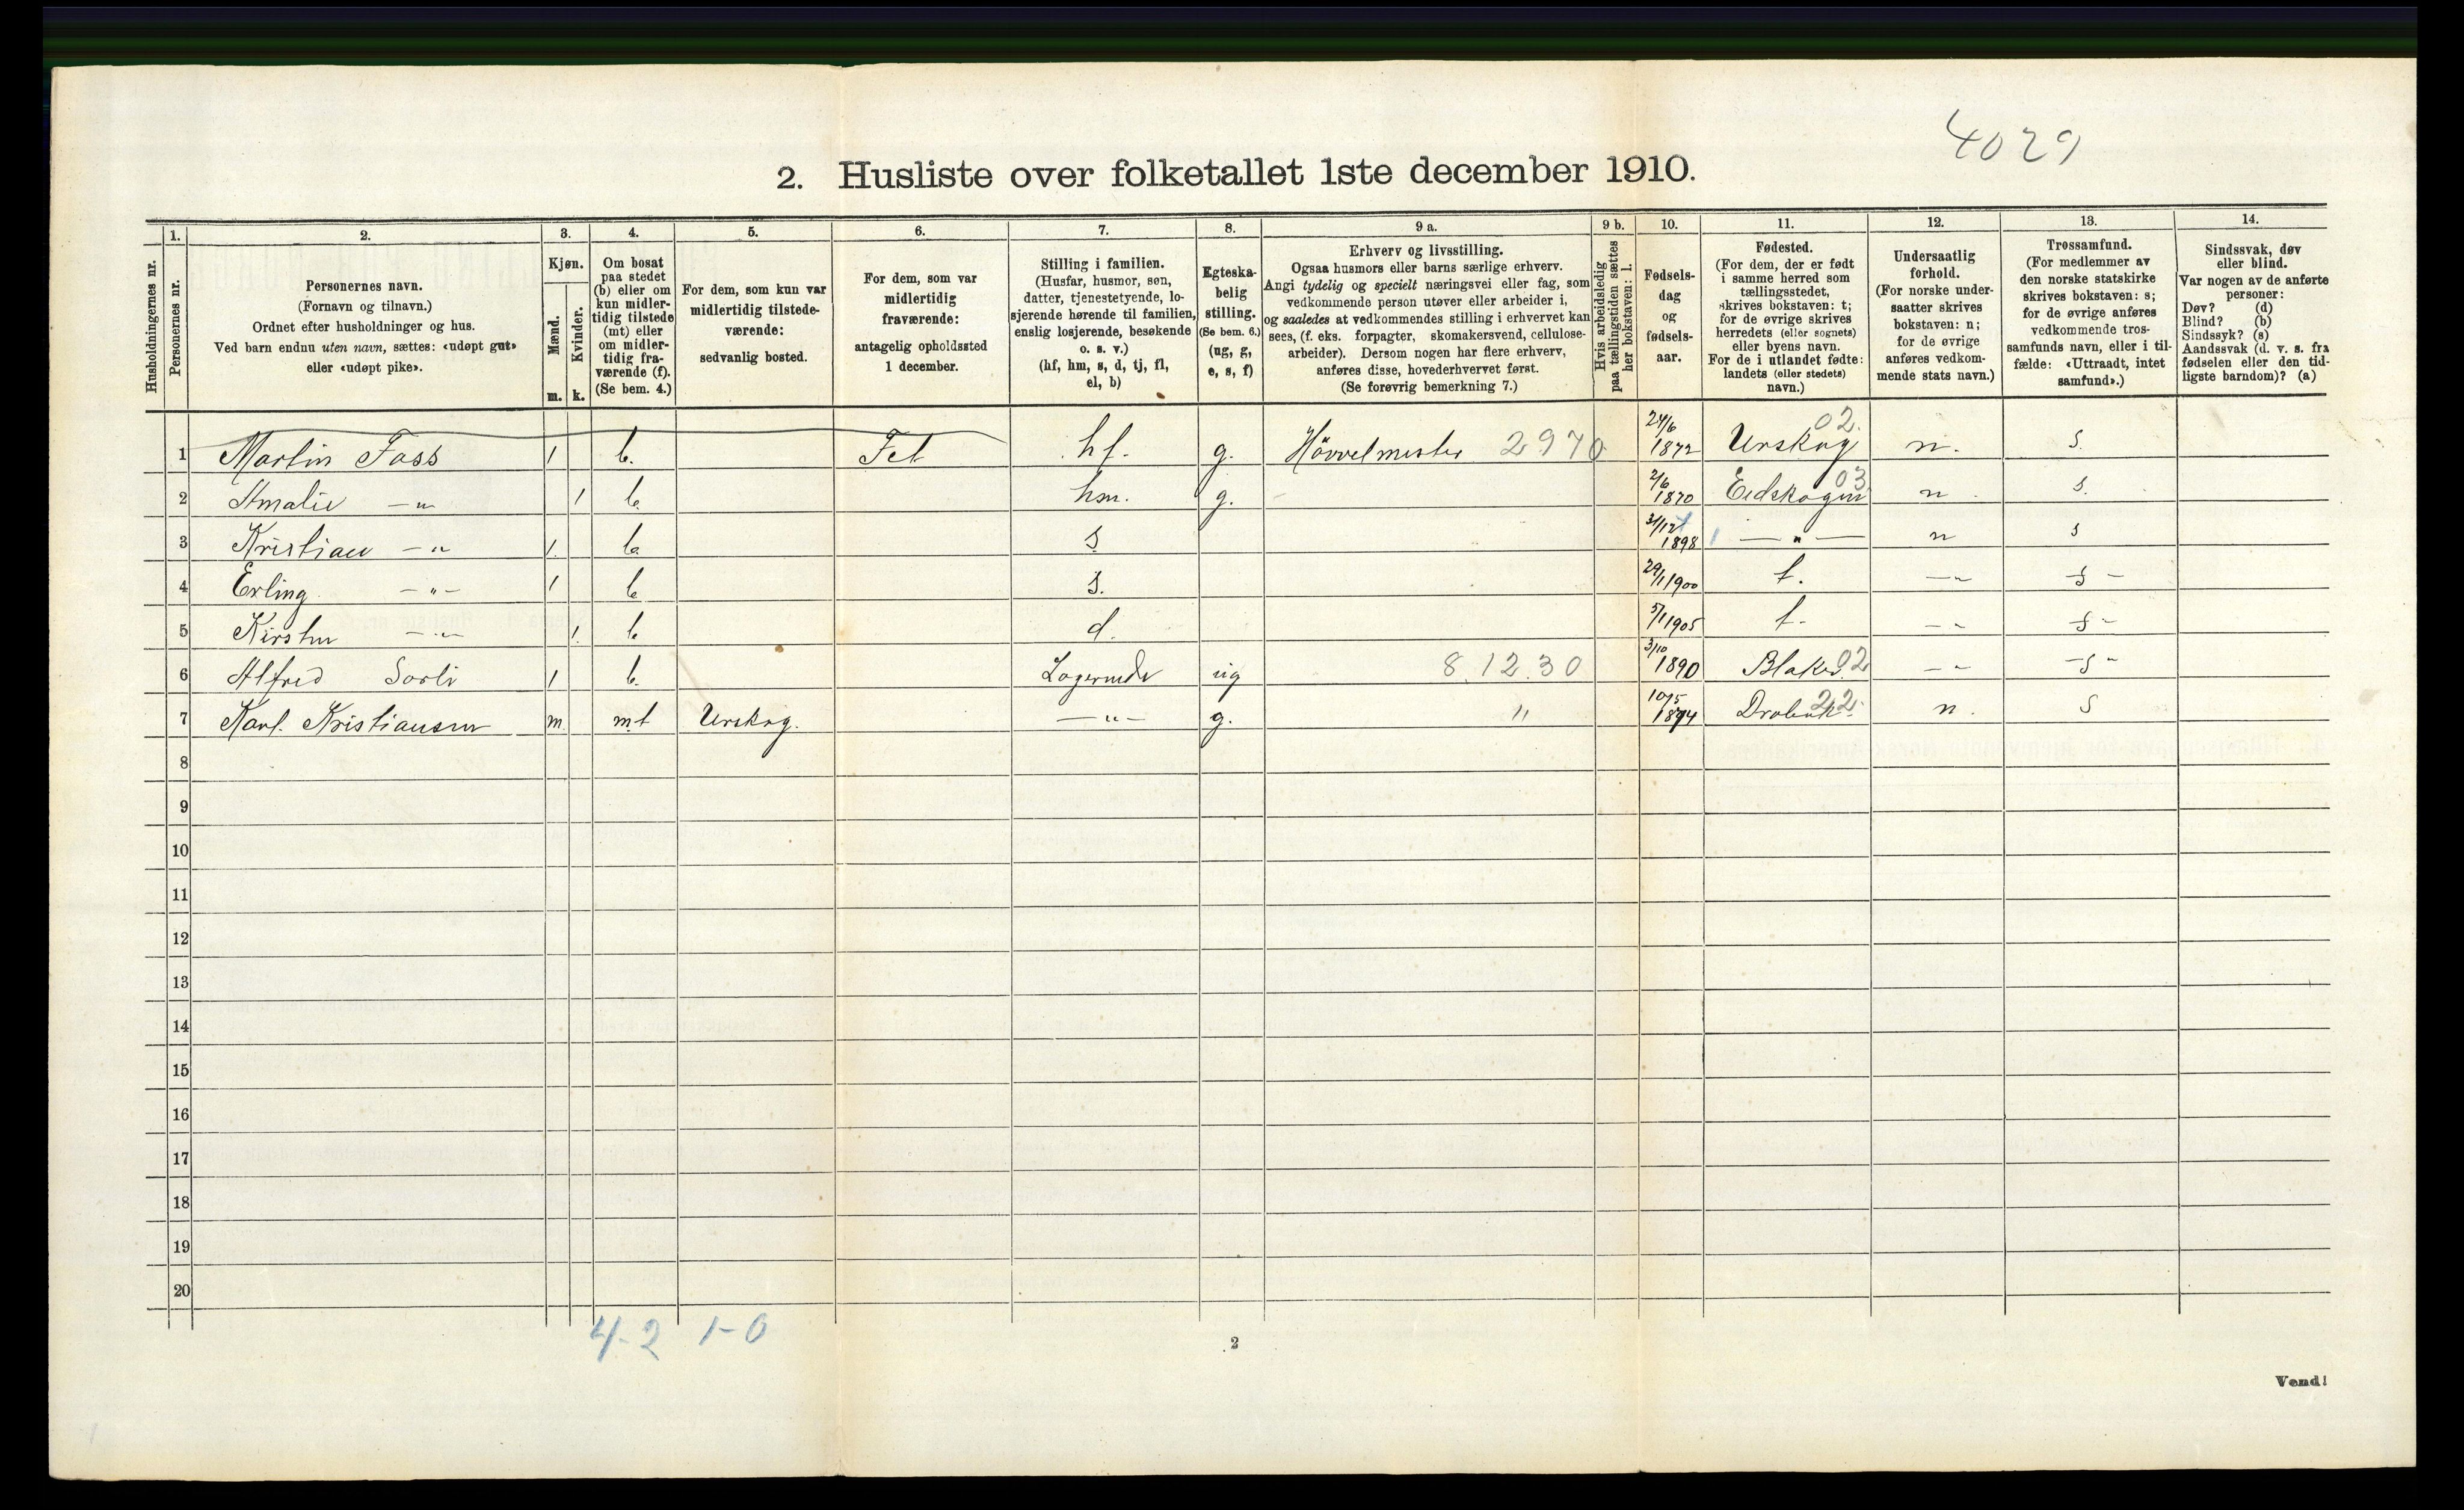 4029
2. Husliste over folketallet 1ste december 1910.
Husholdningernes nr.
1. Personernes nr.
2. Personernes navn.
(Fornavn og tilnavn.)
Ordnet efter husholdninger og hus.
Ved barn endnu uten navn, sættes: «udøpt gut»
eller «udøpt pike».
3. Kjøn.
Mænd. m.
Kvinder. k.
4. Om bosat
paa stedet
(b) eller om
kun midler-
tidig tilstede
(mt) eller
om midler-
tidig fra-
værende (f).
(Se bem. 4.)
5. For dem, som kun var
midlertidig tilstede-
værende:
sedvanlig bosted.
6. For dem, som var
midlertidig
fraværende:
antagelig opholdssted
1 december.
7. Stilling i familien.
(Husfar, husmor, søn,
datter, tjenestetyende, lo-
sjerende hørende til familien,
enslig losjerende, besøkende
o. s. v.)
(hf, hm, s, d, tj, fl,
el, b)
8. Egteska-
belig
stilling.
(Se bem. 6.)
(ug, g,
e, s, f)
9 a. Erhverv og livsstilling.
Ogsaa husmors eller barns særlige erhverv.
Angi tydelig og specielt næringsvei eller fag, som
vedkommende person utøver eller arbeider i,
og saaledes at vedkommendes stilling i erhvervet kan
sees, (f. eks. forpagter, skomakersvend, cellulose-
arbeider). Dersom nogen har flere erhverv,
anføres disse, hovederhvervet først.
(Se forøvrig bemerkning 7.)
9 b. Hvis arbeidsledig
paa tællingstiden sættes
her bokstaven: l.
10. Fødsels-
dag
og
fødsels-
aar.
11. Fødested.
(For dem, der er født
i samme herred som
tællingsstedet,
skrives bokstaven: t;
for de øvrige skrives
herredets (eller sognets)
eller byens navn.
For de i utlandet fødte:
landets (eller stedets)
navn.)
12. Undersaatlig
forhold.
(For norske under-
saatter skrives
bokstaven: n;
for de øvrige
anføres vedkom-
mende stats navn.)
13. Trossamfund.
(For medlemmer av
den norske statskirke
skrives bokstaven: s;
for de øvrige anføres
vedkommende tros-
samfunds navn, eller i til-
fælde: «Uttraadt, intet
samfund».)
14. Sindssvak, døv
eller blind.
Var nogen av de anførte
personer:
Døv? (d)
Blind? (b)
Sindssyk? (s)
Aandssvak (d. v. s. fra
fødselen eller den tid-
ligste barndom)? (a)
1 Martin Foss 1 b. Fet hf. g. Hövvelmester 2970 24/6 1872 Urskog 02. n. s.
2 Amalie -"- 1 b. hm. g. - 2/6 1870 Eidskogen 03 n s.
3 Kristian -"- 1. b. s 31/12 1898 1 -"- n s
4 Erling -"- 1 b s. 29/1 1900 t. -"- s -
5 Kirsten -"- 1. b d. 5/1 1905 t. -"- s -
6 Alfred Sorli 1 b. Logerende ug 8.12.30 3/10 1890 Blaker 02 -"- s -
7 Karl. Kristiansen m. mt Urskog. -"- g. " 10/5 Drobak 22 n. s
8
9
10
11
12
13
14
15
16
17
18
19
20
4-2 1-0
2
Vend!